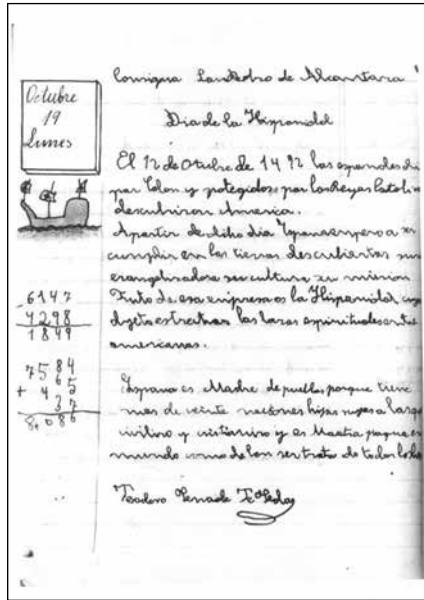 Octubre
19
Lunes
Consigna San Pedro de Alcantara
Dia de la Hispanidad
El 12 de Octubre de 1492 los espanoles di
por Colon y protegidos por los Reyes Catoli
descubrieron America.
A partir de dicho dia Espana empezo a
cumplir en las tierras descubiertas su
evangelizadora su cultura su mision
Fruto de esa empresa es la Hispanidad, cuyo
objeto estrechar los lazos espirituales entre
americanas.
Espana es Madre de pueblos porque tiene
mas de veinte naciones hijas suyas a las que
civilizo y cristianizo y es Maestra porque en
mundo como deben ser tratados todos los
Teodoro
6147
4298
1849
7584
65
+ 43
37
8,086